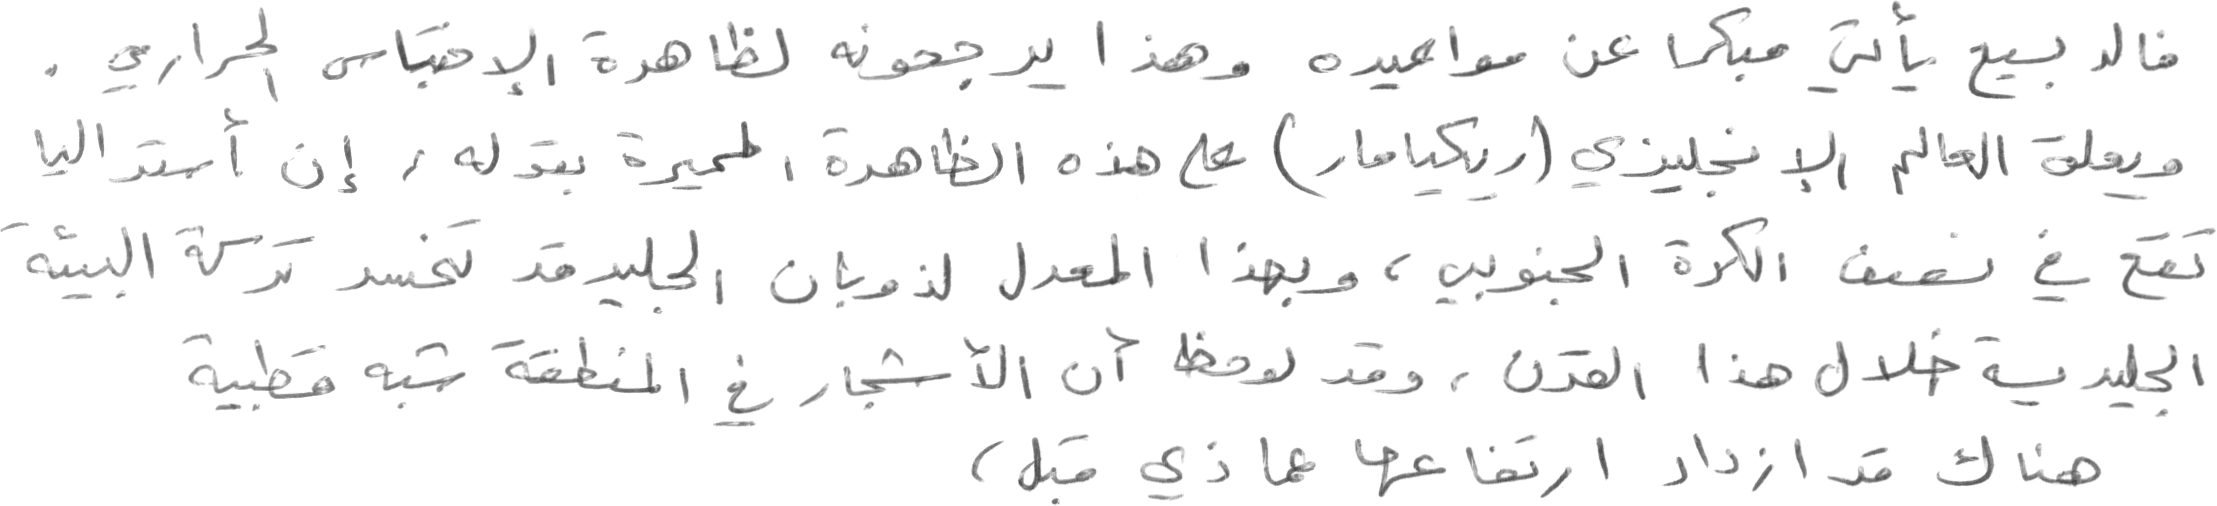 فالربيع يأتي مبكرا عن مواعيده وهذا يرجعونه لظاهرة الإحتباس الحراري .
ويعلق العالم الإنجليزي (ريكيامار) على هذه الظاهرة المحيرة بقوله , إن أستراليا
تقع في نصف الكرة الجنوبي ، وبهذا المعدل لذوبان الجليد قد تخسر تركة البيئة
الجليدية خلال هذا القرن ، وقد لوحظ أن الأشجار في المنطقة شبه قطبية
هناك قد ازداد ارتفاعها عما ذي قبل ،